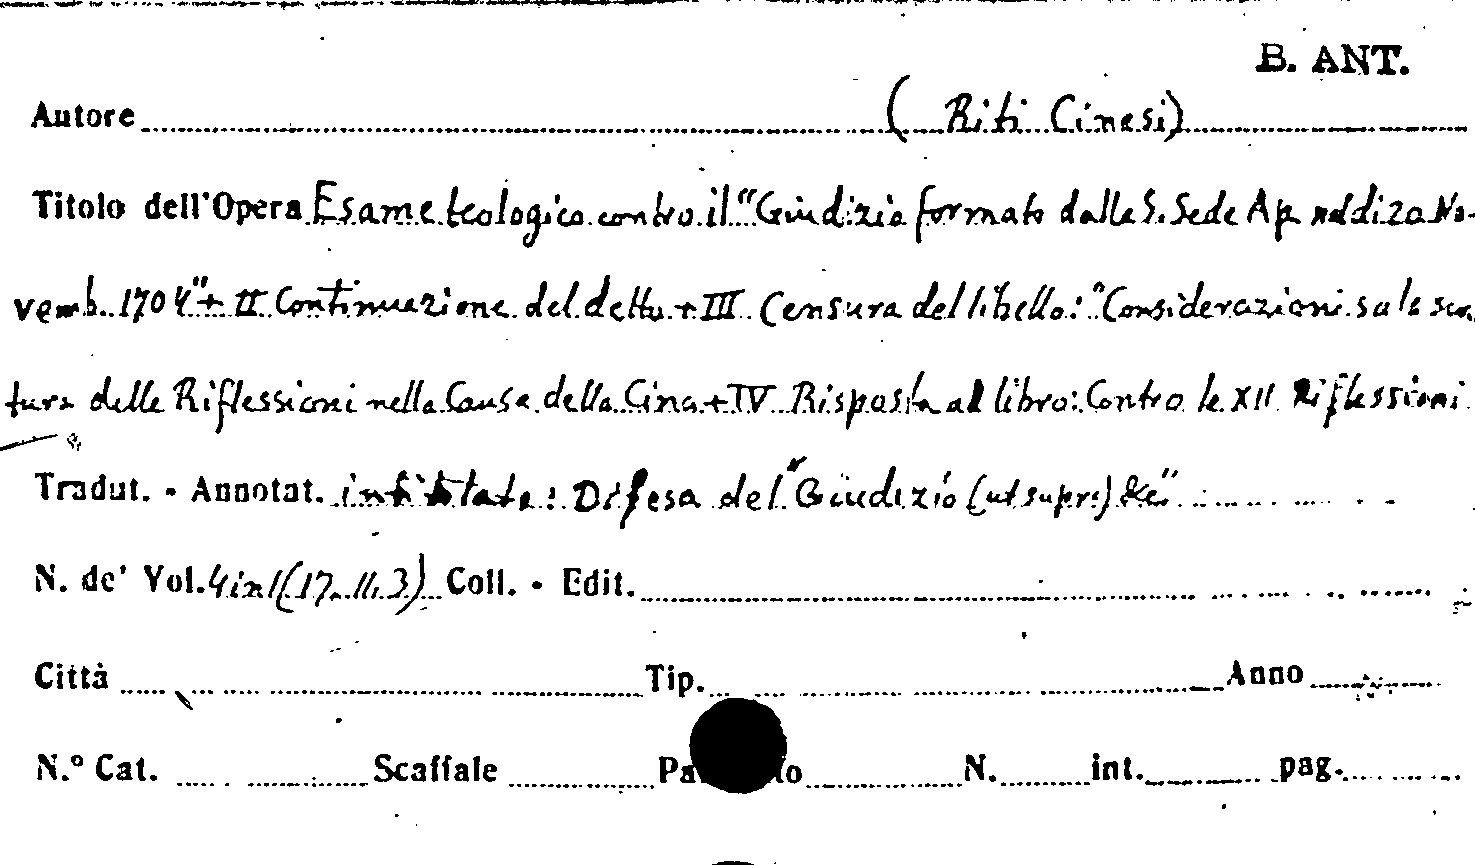 B. ANT.
Autore (Riti Cinesi)
Titolo dell'Opera Esame teologico contro il "Giudizio formato dalla S. Sede Ap. nel di 20 No-
vemb. 1704" + II Continuazione del detto + III Censura del libello: "Considerazioni su la scri
tura delle Riflessioni nella Causa della Cina + IV Risposta al libro: Contro le XII Riflessioni
Tradut. - Annotat. intitolato: Difesa del "Giudizio (ut supra) &c"
N. de' Vol. 4 in 1 (17. 11. 3) Coll. - Edit.
Città Tip. Anno
N.º Cat. Scaffale N. int. pag.